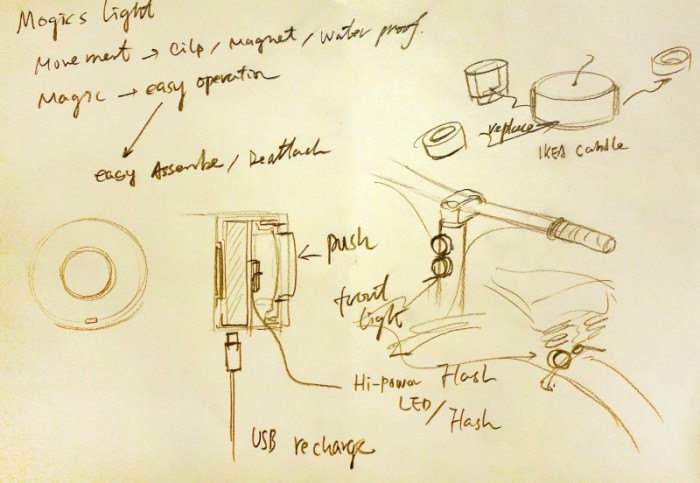 Mogics Light
Movement → Cilp / Magnet / Water proof.
Magic → easy operation
easy Assembe / Deattach
replace
IKEA Candle
push
front
light
Hi-power Flash
LED / Flash
USB recharge